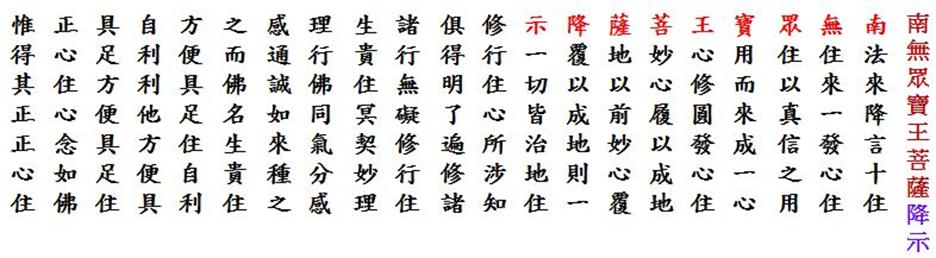 南無眾寶王菩薩降示
南法來降言十住
無住來一發心住
眾住以真信之用
寶用而來成一心
王心修圓發心住
菩妙心履以成地
薩地以前妙心覆
降覆以成地則一
示一切皆治地住
修行住心所涉知
俱得明了遍修諸
諸行無礙修行住
生貴住冥契妙理
理行佛同氣分感
感通誠如來種之
之而佛名生貴住
方便具足住自利
自利利他方便具
具足方便具足住
正心住心念如佛
惟得其正正心住